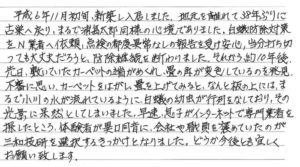 平成6年11月初旬、新築し入居しました。地元を離れて38年ぶりに
古巣へ戻り、まるで浦島太郎同様の心境でありました。白蟻防除対策
をN業者へ依頼、点検の都度異常なしの報告を受け安心、当分打ち切
っても大丈夫だろうと、防除継続を断わりました。それから約10年後、
先日、敷いていたカーペットの端がめくれ、畳の角が変色しているのを発見、
不審に思い、カーペットをはがし畳を上げてみると、なんと板の上には、ま
るで小川の水が流れているように、白蟻の幼虫が行列をなしており、その
光景に呆然としてしまいました。早速、息子がインターネットで専門業者を
探したところ、体験者が異口同音に、会社や職員を褒めていたのが
三和技研を選択するきっかけとなりました。どうか今後とも宜しく
お願い致します。